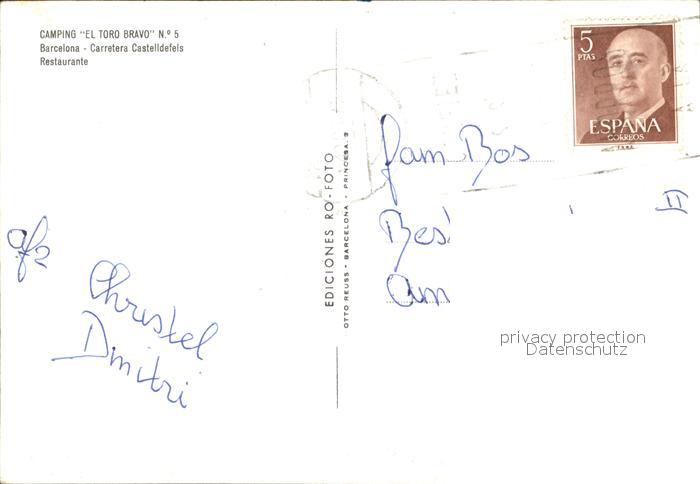 CAMPING "EL TORO BRAVO" N.º 5
Barcelona - Carretera Castelldefels
Restaurante
5
PTAS
ESPAÑA
CORREOS
EDICIONES RO-FOTO
OTTO REUSS - BARCELONA - PRINCESA, 3
fam Bos
II
Bes
Am
afz
Christel
Dmitri
privacy protection
Datenschutz